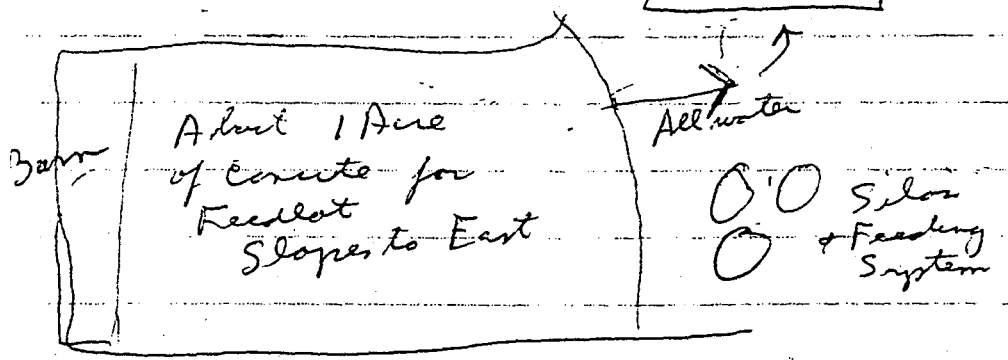 Barn
About 1 Acre
of Concrete for
Feedlot
Slopes to East
All water
Silos
+ Feeding
System